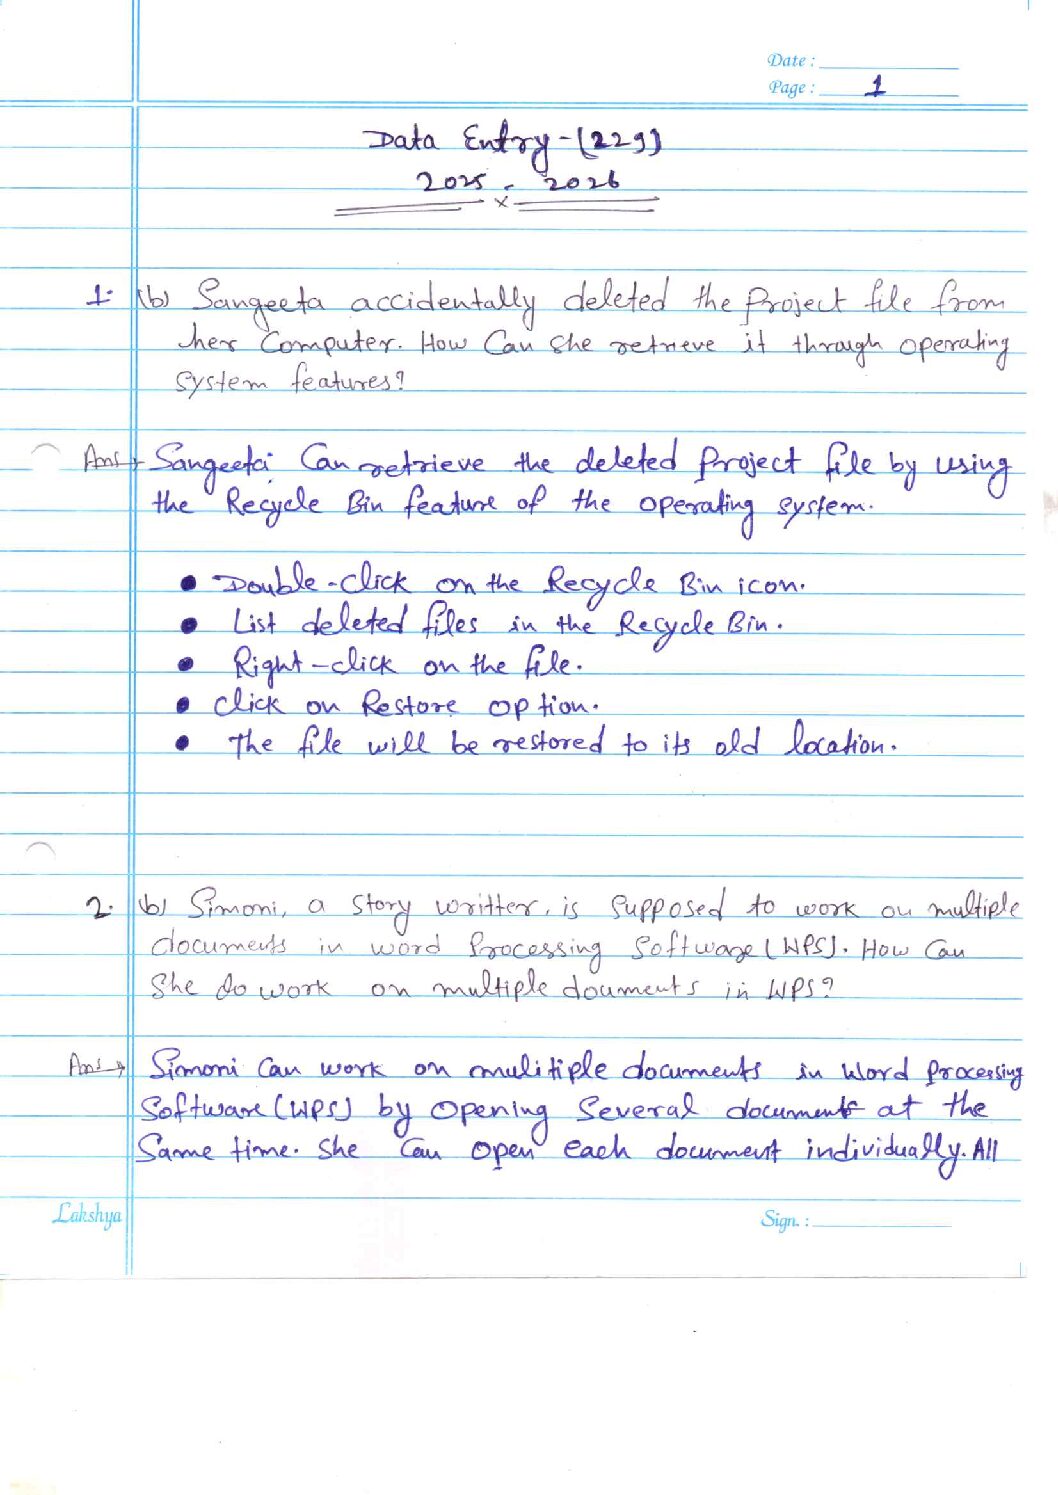 Date :
Page : 1
Data Entry - (229)
2025 - 2026
x
1. (b) Sangeeta accidentally deleted the Project file from
her Computer. How Can She retrieve it through operating
System features?
Ans→ Sangeeta Can retrieve the deleted Project file by using
the Recycle Bin feature of the operating system.
● Double-click on the Recycle Bin icon.
● List deleted files in the Recycle Bin.
● Right-click on the file.
● Click on Restore option.
● The file will be restored to its old location.
2. (b) Simoni, a Story writter, is Supposed to work on multiple
documents in word Processing Software (WPS). How Can
She do work on multiple douments in WPS?
Ans→ Simoni Can work on mulitiple documents in Word Processing
Software (WPS) by opening Several documents at the
Same time. She Can open each document individually. All
Lakshya
Sign. :